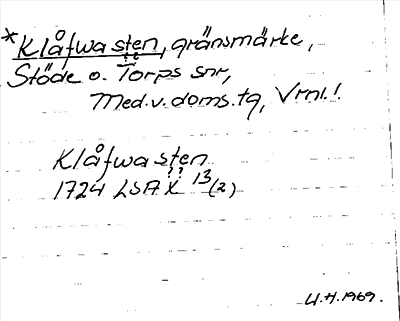 *Klåfwasten, gränsmärke,
??
Stöde o. Torps snr,
Med.v.doms.tg, Vrml.!
Klåfwasten
??
1724 LSA X 13/(2)
U.H.1969.